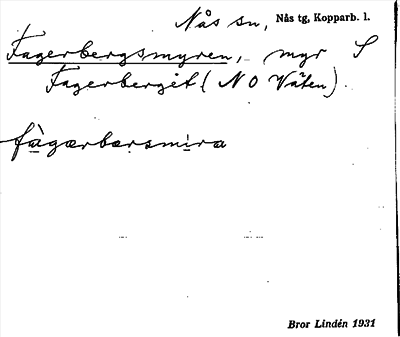 Nås sn, Nås tg, Kopparb. l.
Fagerbergsmyren, myr S
Fagerberget (N O Väten).
fàgærbærsmira
Bror Lindén 1931